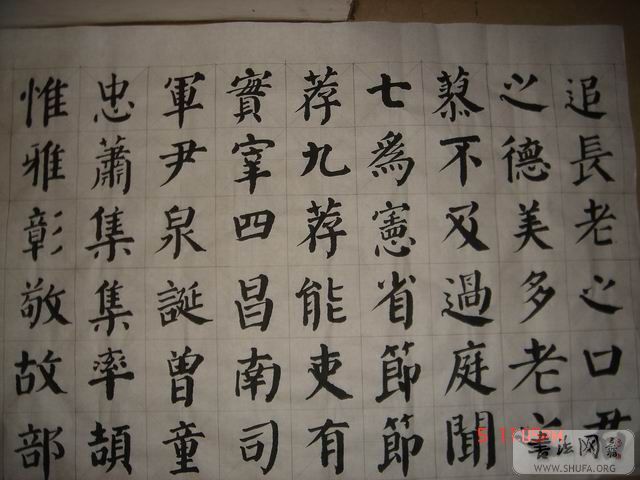 追長老之口君
之德美多老
慕不及過庭聞
七為憲省節節
荐九荐能吏有
實宰四昌南司
軍尹泉誕曾童
忠蕭集集率頡
惟雅彰敬故部
书法网
WWW.SHUFA.ORG